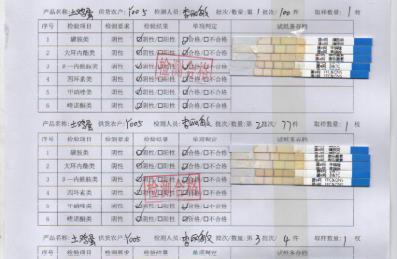 产品名称: 土鸡蛋 供货农户: Y005 检测人员: 批次/数量: 第 1 批次/ 100 件 取样数量: 1 枚
序号 检验项目 检测要求 检验结果 单项判定 试纸条存档
1 磺胺类 阴性 ☑阴性/□阳性 ☑合格/□不合格
2 大环内酯类 阴性 ☑阴性/□阳性 ☑合格/□不合格
3 β—内酰胺类 阴性 ☑阴性/□阳性 ☑合格/□不合格
4 四环素类 阴性 ☑阴性/□阳性 ☑合格/□不合格
5 甲硝唑类 阴性 ☑阴性/□阳性 ☑合格/□不合格
6 喹诺酮类 阴性 ☑阴性/□阳性 ☑合格/□不合格
检测合格
产品名称: 土鸡蛋 供货农户: Y005 检测人员: 批次/数量: 第 2 批次/ 77 件 取样数量: 1 枚
序号 检验项目 检测要求 检验结果 单项判定 试纸条存档
1 磺胺类 阴性 ☑阴性/□阳性 ☑合格/□不合格
2 大环内酯类 阴性 ☑阴性/□阳性 ☑合格/□不合格
3 β—内酰胺类 阴性 ☑阴性/□阳性 ☑合格/□不合格
4 四环素类 阴性 ☑阴性/□阳性 ☑合格/□不合格
5 甲硝唑类 阴性 ☑阴性/□阳性 ☑合格/□不合格
6 喹诺酮类 阴性 ☑阴性/□阳性 ☑合格/□不合格
检测合格
产品名称: 土鸡蛋 供货农户: Y005 检测人员: 批次/数量: 第 3 批次/ 4 件 取样数量: 1 枚
序号 检验项目 检测要求 检验结果 单项判定 试纸条存档